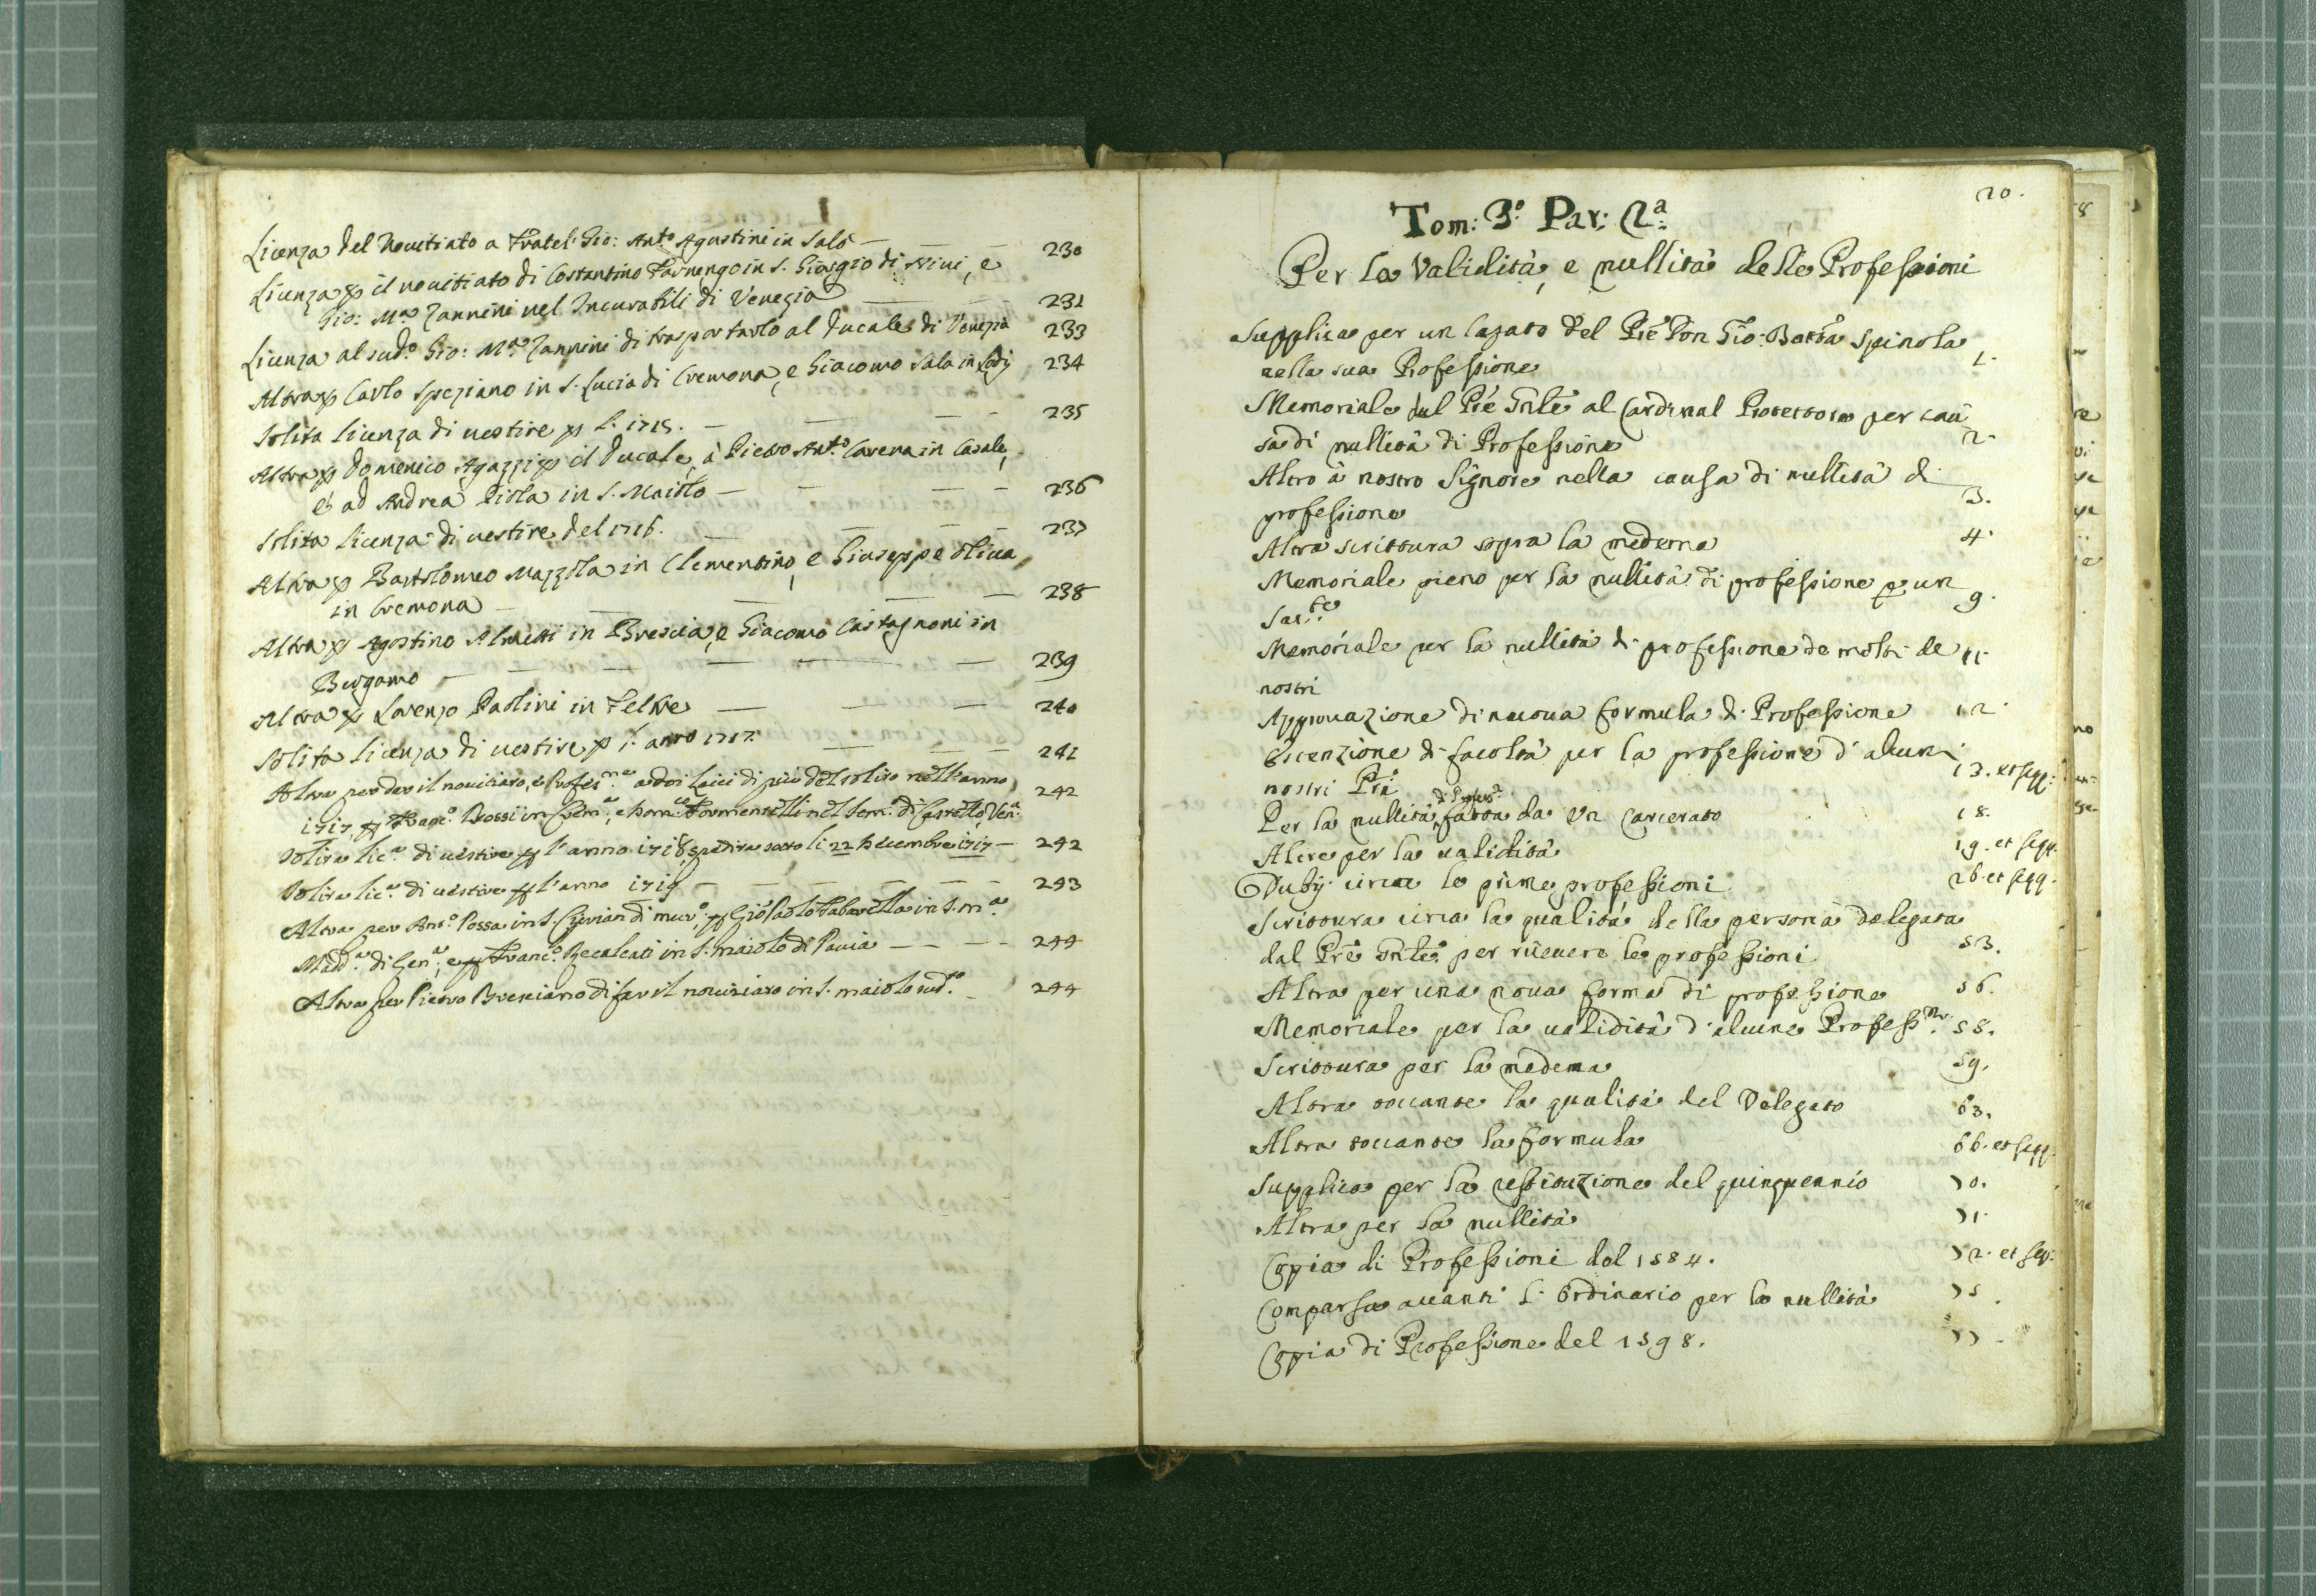 Licenza del Nouitiato a Fratel' Gio: Ant.º Agostini in Salò — 230
Licenza p il nouitiato di Costantino Fornengo in S. Giorgio di Noui, e
Gio: M.ª Zannini nel Incurabili di Venezia — 231
Licenza al sud.º Gio: M.ª Zannini di trasportarlo al Ducale di Venezia 233
Altra p Carlo Speziano in S. Lucia di Cremona, e Giacomo Sala in Lodi 234
Solita licenza di uestire p l. 1715. — 235
Altra p Domenico Agazzi p il Ducale, à Pietro Ant.º Cavena in Casale,
et ad Andrea Piola in S. Maiolo — 236
Solita licenza di uestire del 1716. — 237
Altra p Bartolomeo Mazzola in Clementino, e Giuseppe Oliua
in Cremona — 238
Altra p Agostino Almetti in Brescia, e Giacomo Castagnoni in
Bergamo — 239
Altra p Lorenzo Paolini in Feltre — 240
Solita licenza di uestire p l. anno 1717. — 241
Altra per dar il nouiziato, e Profes.ne a doi laici di più del solito nell'anno 242
1717, p Franc.º Rossi in Crem.ª, e Dom.co Formentelli nel Sem.º di Castello, Ven.ª
Solita lic.ª di uestire p l'anno 1718 spedita sotto li 22 Decembre 1717 — 242
Solita lic.ª di uestire p l'anno 1719 — 243
Altra per Ant.º Possa in S. Ciprian di Mur.º, p Gio Paolo Tabarella in S. M.ª
Madd.ª di Gen.ª, e p Franc.º Recalcati in S. Maiolo di Pauia — 244
Altra per Pietro Breniano di far il nouiziato in S. Maiolo sud.to — 244
20.
Tom: 3.º Par: 2.ª
Per la Validità, e nullità delle Professioni
Supplica per un lazaro del Pre Don Gio: Batta Spinola
nella sua Professione 1.
Memoriale del Pre Gnle al Cardinal Protettore per cau
sa di nullità di Professione 2.
Altro à nostro Signore nella causa di nullità di
professione 3.
Altra scrittura sopra la medema 4.
Memoriale pieno per la nullità di professione p un 9.
Sar.te
Memoriale per la nullità di professione de molti de 11.
nostri
Approuazione di nuoua formula di Professione 12.
Estenzione di facoltà per la professione d'alcuni
nostri Pri 13. et seqq:
Per la nullità di Profess.e fatta da Un Carcerato 18.
Altre per la ualidità 19. et seqq.
Dubij circa le prime professioni 26. et seqq.
Scrittura circa la qualità della persona delegata
dal Pre Gnle per riceuere le professioni 53.
Altra per una noua forma di professione 56.
Memoriale per la ualidità d'alcune Profess.ni 58.
Scrittura per la medema 59.
Altra toccante la qualità del Delegato 63.
Altra toccante la formula 66. et seqq.
Supplica per la restituzione del quinquennio 70.
Altra per la nullità 71.
Copia di Professioni dal 1584. 72. et seq:
Comparsa auanti l' Ordinario per la nullità 75
Copia di Professione del 1598. 77